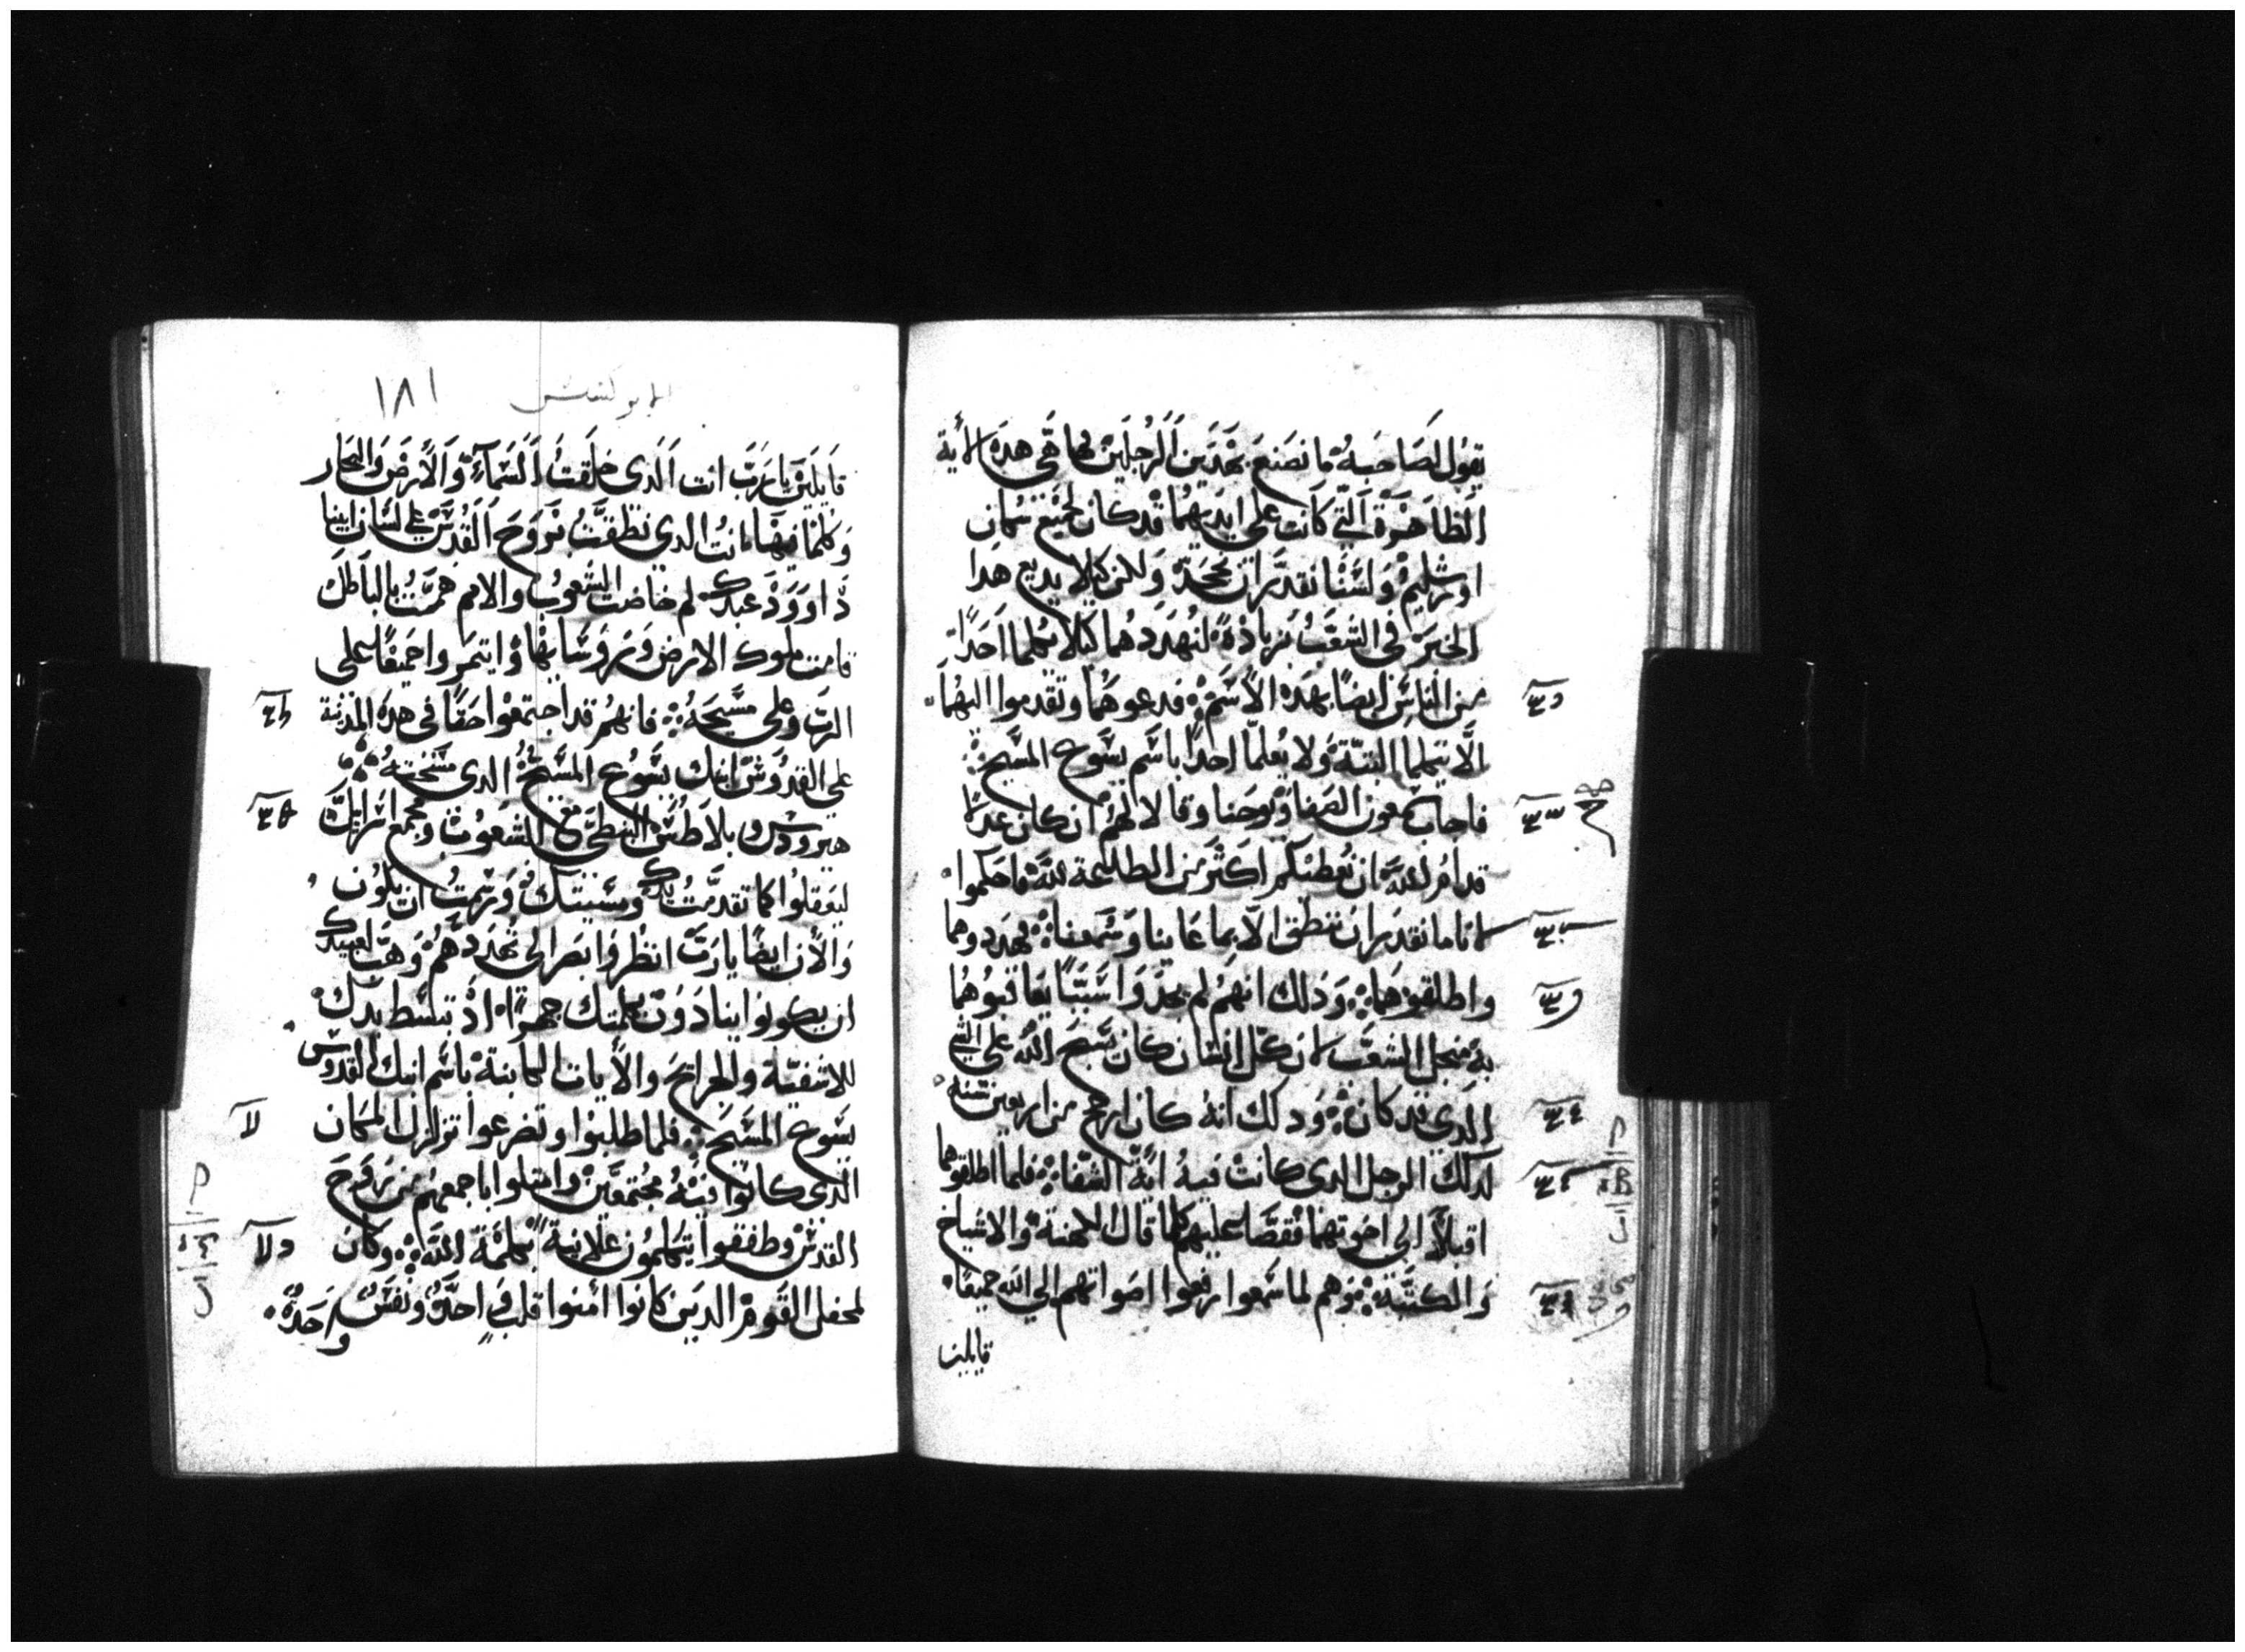 يقول لصاحبه ما نصنع بهذين الرجلين بها هي هده الأية
الظاهرة التي كانت على ايديهما قد كان لجميع سكان
اورشليم ولسنا نقدر ان نجحده ولكن كيلا يديع هدا
الخبر في الشعب زيادة لنهددهما كيلا يكلما احدا
من الناس ايضا بهده الاسم فدعوهما وتقدموا اليهما
الا يتكلما البتة ولا يعلما احدا باسم يسوع المسيح
فاجاب سمعون الصفا ويوحنا وقالا لهم ان كان عدلا
قدام الله ان نعطيكم اكثر من الطاعة لله فاحكموا
لانا ما نقدر ان ننطق الا بما عاينا وسمعنا فهددوهما
واطلقوهما ودلك انهم لم يجدوا شيئا يعاقبوهما
به منجل الشعب لان كل انسان كان يسبح الله على الشي
الدي قد كان ودلك انه كان ارجح من اربعين سنة
لدلك الرجل الدي كانت فيه اية الشفا فلما اطلقوهما
اقبلا الى اخوتهما فقصا عليهم كلما قال الكهنة والاشياخ
والكتبة وهم لما سمعوا رفعوا اصواتهم الى الله جميعا
قايلين
١٨١
قايلين يا رب انت الدي خلقت السماء والأرض والبحار
وكلما فيها انت الدي نطقت بروح القدس على لسان ابينا
داوود عبدك لم خاضت الشعوب والامم همت بالباطل
قامت ملوك الارض وروسايها وايتمروا جميعا على
الرب وعلى مسيحه فانهم قد اجتمعوا حقا في هده المدينة
على القدوس ابنك يسوع المسيح الدي مسحته
هيرودس و بلاطس النبطي مع الشعوب ومجمع اسرائيل
ليفعلوا كما تقدمت يدك ومشيتك ورسمت ان يكون
والأن ايضا يا رب انظر وابصر الى تهددهم وهب لعبيدك
ان يكونوا ينادون بكلمتك جهرا اذ تبسط يدك
للاشفية والجرايح والأيات الكاينة باسم ابنك القدوس
يسوع المسيح فلما طلبوا وتضرعوا تزلزل المكان
الذي كانوا فيه مجتمعين وامتلوا باجمعهم من روح
القدس وطفقوا يتكلمون علانية بكلمة الله وكان
لمحفل القوم الدين كانوا امنوا قلب احد ونفس واحدة